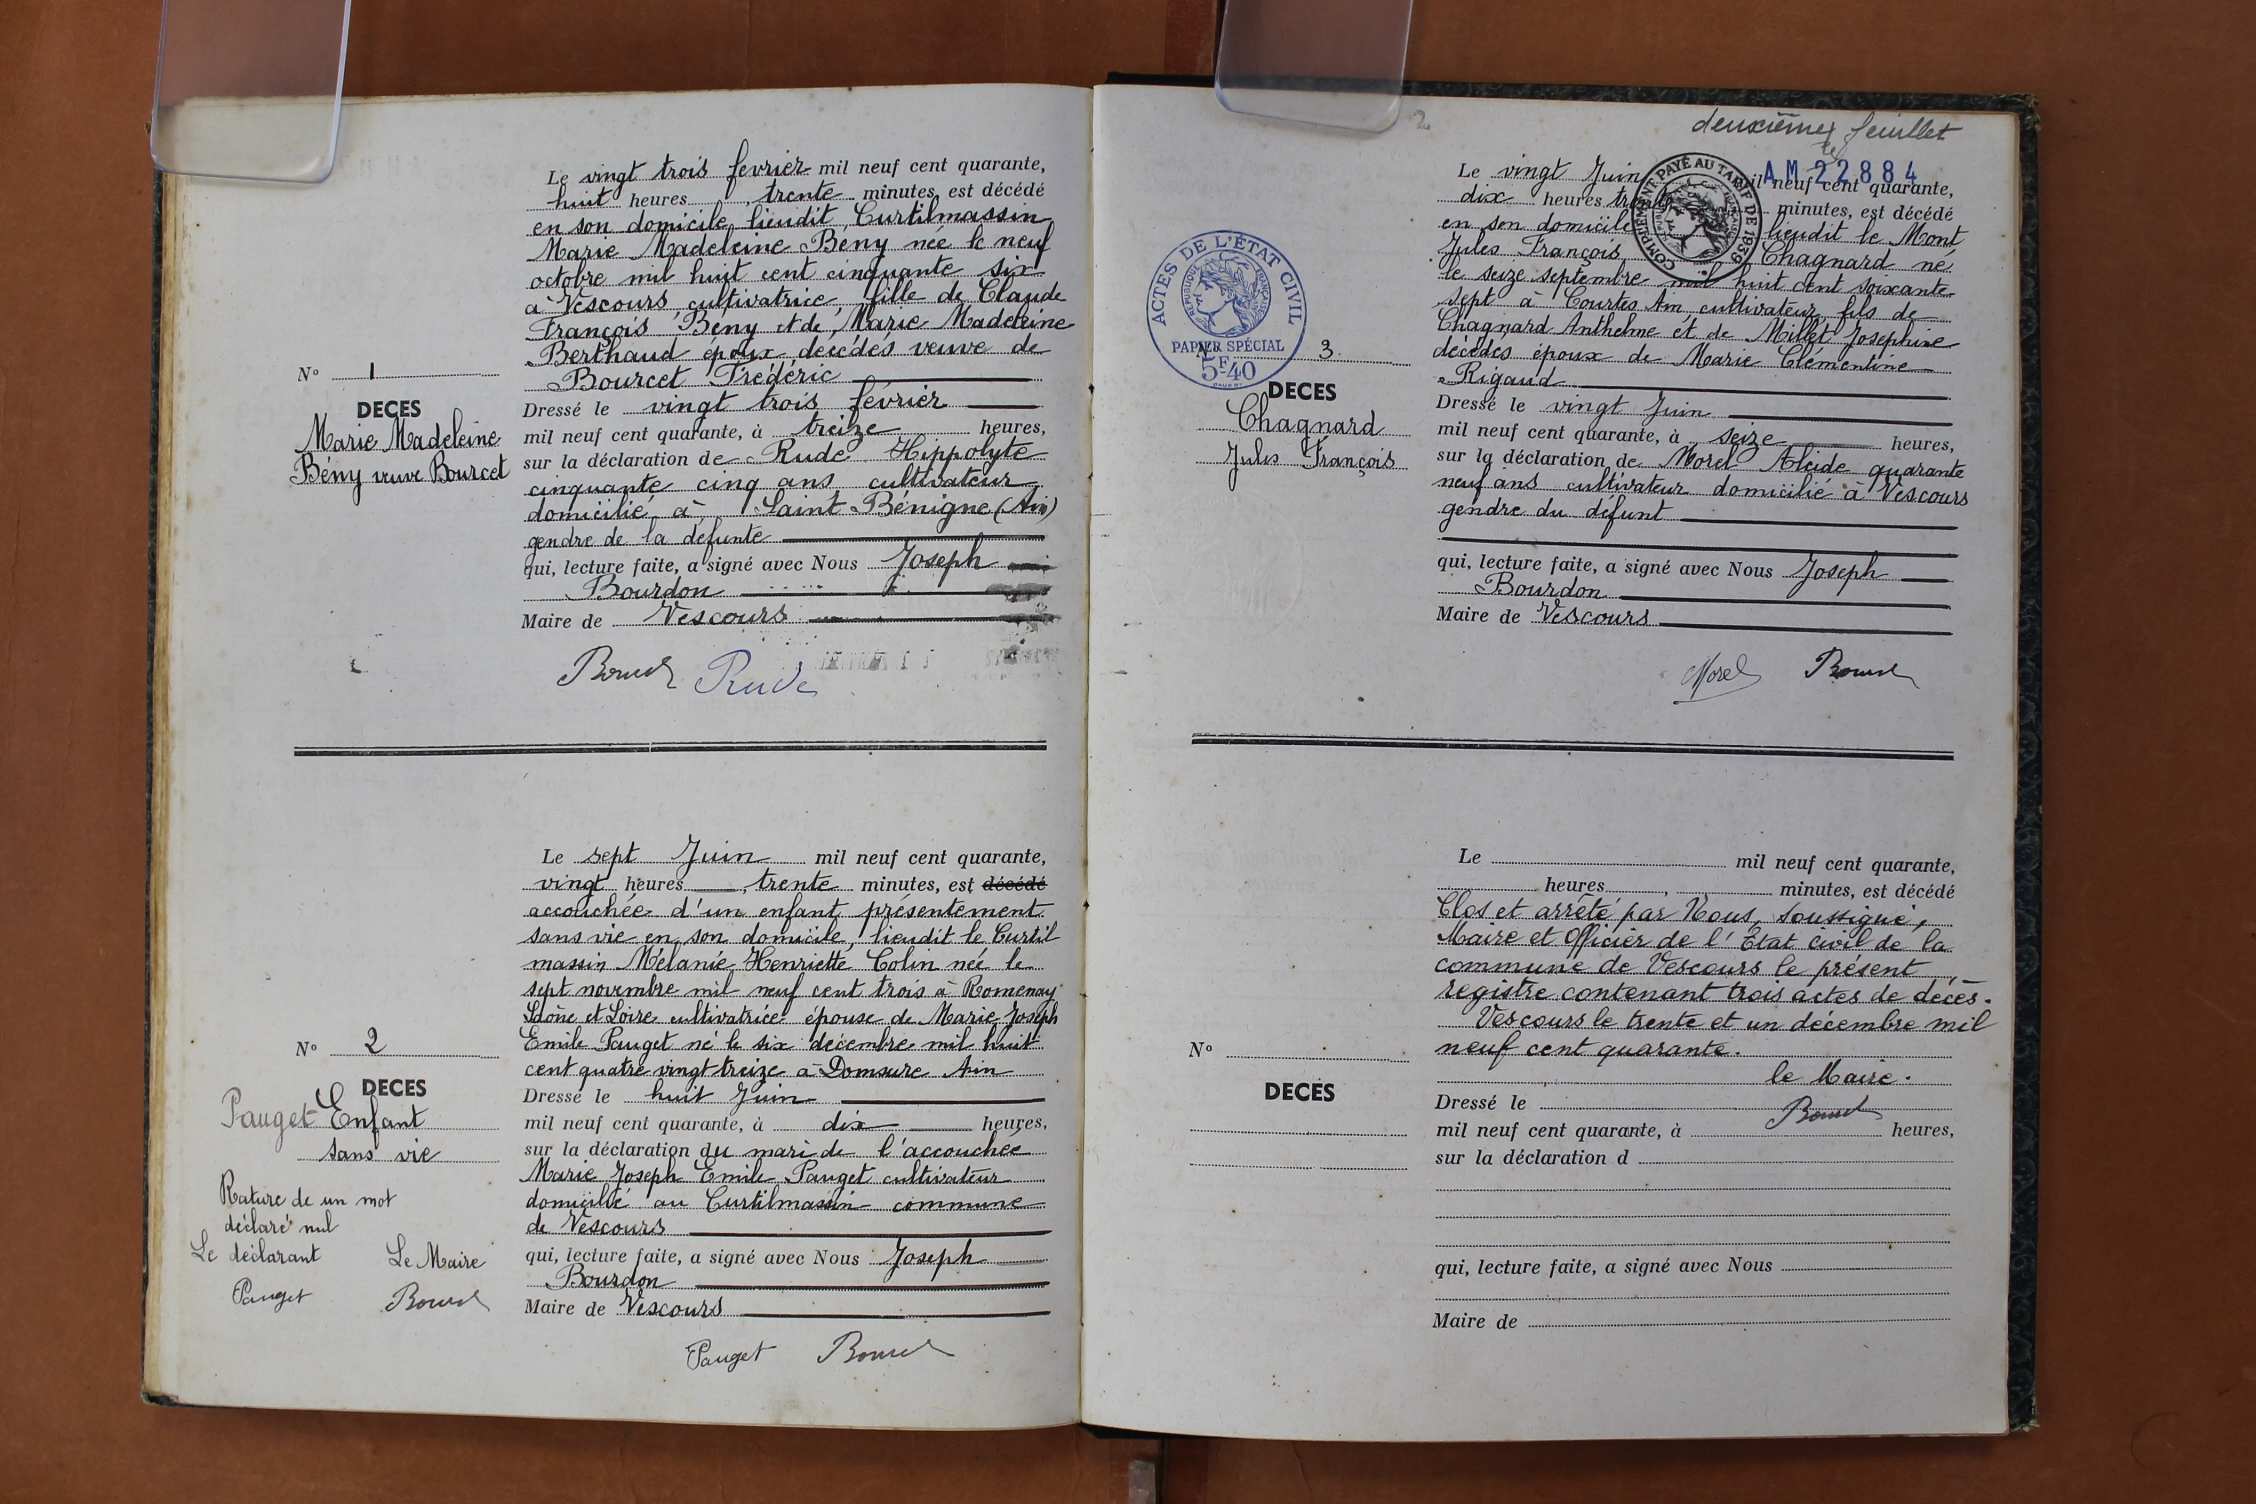 Le vingt trois fevrier mil neuf cent quarante,
huit heures, trente minutes, est décédé
en son domicile lieudit Curtilmassin
Marie Madeleine Bény née le neuf
octobre mil huit cent cinquante six
à Vescours cultivatrice, fille de Claude
François Bény et de Marie Madeleine
Berthaud époux décédés veuve de
Bourcet Frédéric
Nº 1
DECES
Marie Madeleine
Bény veuve Bourcet
Dressé le vingt trois février
mil neuf cent quarante, à treize heures,
sur la déclaration de Rude Hippolyte
cinquante cinq ans cultivateur
domicilié à Saint Bénigne (Ain)
gendre de la défunte
qui, lecture faite, a signé avec Nous Joseph
Bourdon
Maire de Vescours
Rude
Le sept Juin mil neuf cent quarante,
vingt heures, trente minutes, est décédé
accouchée d'un enfant présentement
sans vie en son domicile, lieudit le Curtil
massin Mélanie Henriette Colin née le
sept novembre mil neuf cent trois à Romenay
Saône et Loire cultivatrice épouse de Marie Joseph
Emile Pauget né le six décembre mil huit
cent quatre vingt treize à Domsure Ain
Nº 2
DECES
Pauget Enfant
sans vie
Rature de un mot
déclaré nul
Le déclarant Le Maire
Pauget
Dressé le huit Juin
mil neuf cent quarante, à dix heures,
sur la déclaration du mari de l'accouchée
Marie Joseph Emile Pauget cultivateur
domicilié au Curtilmassin commune
de Vescours
qui, lecture faite, a signé avec Nous Joseph
Bourdon
Maire de Vescours
Pauget
2
deuxième feuillet
AM 22884
COMPLEMENT PAYÉ AU TARIF DE 1939
Le vingt Juin mil neuf cent quarante,
dix heures trente minutes, est décédé
en son domicile lieudit le Mont
Jules François Chagnard né
le seize septembre mil huit cent soixante
sept à Courtes Ain cultivateur fils de
Chagnard Anthelme et de Millet Josephine
décédés époux de Marie Clémentine
Rigaud
ACTES DE L'ÉTAT CIVIL
RÉPUBLIQUE FRANÇAISE
PAPIER SPÉCIAL
5F40
3
DECES
Chagnard
Jules François
Dressé le vingt Juin
mil neuf cent quarante, à seize heures,
sur la déclaration de Morel Alcide quarante
neuf ans cultivateur domicilié à Vescours
gendre du défunt
qui, lecture faite, a signé avec Nous Joseph
Bourdon
Maire de Vescours
Morel
Le mil neuf cent quarante,
heures, minutes, est décédé
Clos et arrêté par Nous, soussigné,
Maire et Officier de l'Etat civil de la
commune de Vescours le présent
registre contenant trois actes de décès.
Vescours le trente et un décembre mil
neuf cent quarante.
le Maire.
Nº
DECES
Dressé le
mil neuf cent quarante, à heures,
sur la déclaration d
qui, lecture faite, a signé avec Nous
Maire de